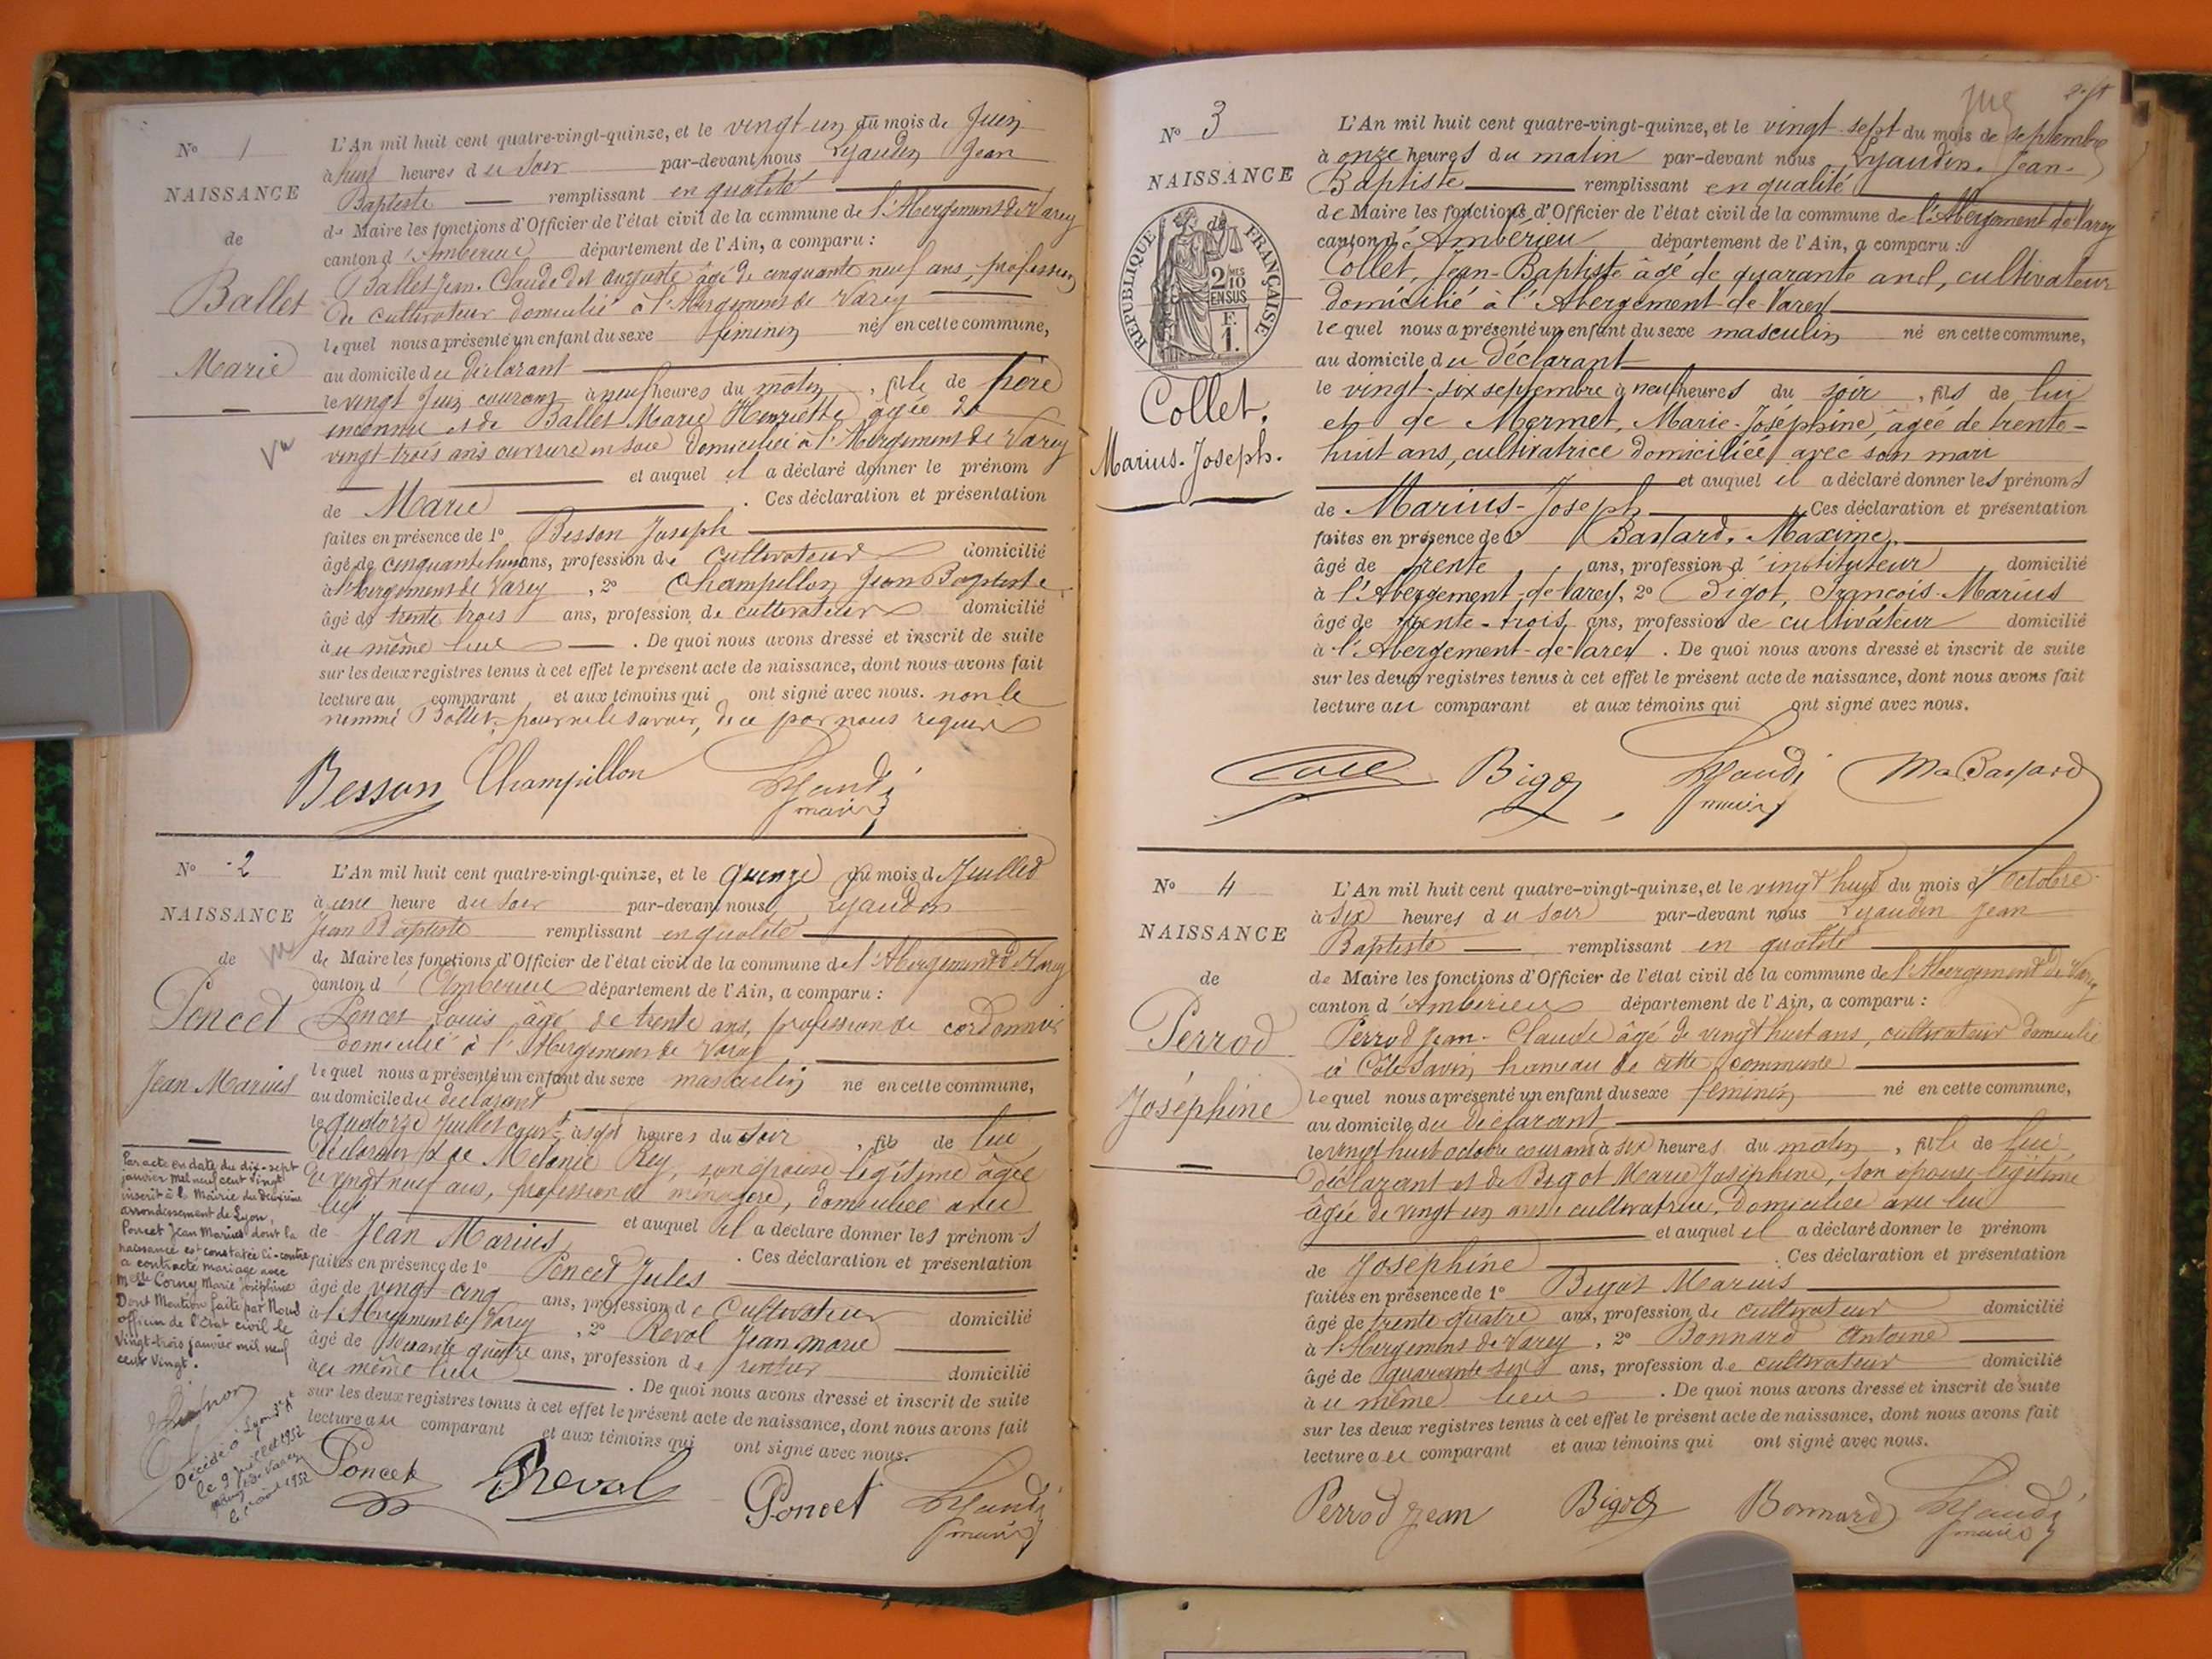 N° 1
NAISSANCE
de
Ballet
Marie
L'An mil huit cent quatre-vingt-quinze, et le vingt un du mois de Juin
à huit heures du soir par-devant nous Lyaudin Jean
Baptiste remplissant en qualité
de Maire les fonctions d'Officier de l'état civil de la commune de l'Abergement de Varey
canton d'Ambérieu département de l'Ain, a comparu :
Ballet Jean-Claude dit Auguste âgé de cinquante neuf ans, profession
de cultivateur domicilié à l'Abergement de Varey
lequel nous a présenté un enfant du sexe féminin né en cette commune,
au domicile du déclarant
le vingt Juin courant à neuf heures du matin, fille de père
inconnu et de Ballet Marie Henriette âgée de
vingt-trois ans ouvrière en soie domiciliée à l'Abergement de Varey
et auquel il a déclaré donner le prénom
de Marie . Ces déclaration et présentation
faites en présence de 1° Besson Joseph
âgé de cinquante huit ans, profession de cultivateur domicilié
à l'Abergement de Varey, 2° Champillon Jean Baptiste
âgé de trente trois ans, profession de cultivateur domicilié
au même lieu . De quoi nous avons dressé et inscrit de suite
sur les deux registres tenus à cet effet le présent acte de naissance, dont nous avons fait
lecture au comparant et aux témoins qui ont signé avec nous. non le
nommé Ballet, pour ne le savoir, de ce par nous requis
Besson Champillon Lyaudi
maire
N° 2
NAISSANCE
de
Poncet
Jean Marius
L'An mil huit cent quatre-vingt-quinze, et le quinze du mois de Juillet
à une heure du soir par-devant nous Lyaudin
Jean Baptiste remplissant en qualité
de Maire les fonctions d'Officier de l'état civil de la commune de l'Abergement de Varey
canton d'Ambérieu département de l'Ain, a comparu :
Poncet Louis âgé de trente ans, profession de cordonnier
domicilié à l'Abergement de Varey
lequel nous a présenté un enfant du sexe masculin né en cette commune,
au domicile du déclarant
le quatorze Juillet cour^t à sept heures du soir, fils de lui
déclarant & de Mélanie Rey, son épouse légitime âgée
de vingt neuf ans, profession de ménagère, domiciliée avec
lui
et auquel il a déclaré donner les prénoms
de Jean Marius . Ces déclaration et présentation
faites en présence de 1° Poncet Jules
âgé de vingt cinq ans, profession de cultivateur domicilié
à l'Abergement de Varey, 2° Reval Jean Marie
âgé de soixante quatre ans, profession de rentier domicilié
au même lieu . De quoi nous avons dressé et inscrit de suite
sur les deux registres tenus à cet effet le présent acte de naissance, dont nous avons fait
lecture au comparant et aux témoins qui ont signé avec nous.
Poncet Reval Poncet Lyaudi
maire
Par acte en date du dix-sept
janvier mil neuf cent vingt
inscrit à la Mairie du deuxième
arrondissement de Lyon,
Poncet Jean Marius dont la
naissance est constatée ci-contre
a contracté mariage avec
Melle Corny Marie Joséphine
Dont Mention faite par Nous
officier de l'Etat civil le
vingt-trois janvier mil neuf
cent vingt.
Décédé à Lyon 3e At
le 9 Juillet 1952
Abergt de Varey
le 1er août 1952
N° 3
NAISSANCE
de
RÉPUBLIQUE FRANÇAISE
2/10
EN SUS
F.
1.
Collet.
Marius-Joseph.
L'An mil huit cent quatre-vingt-quinze, et le vingt-sept du mois de septembre
à onze heures du matin par-devant nous Lyaudin, Jean-
Baptiste remplissant en qualité
de Maire les fonctions d'Officier de l'état civil de la commune de l'Abergement-de-Varey
canton d'Ambérieu département de l'Ain, a comparu :
Collet, Jean-Baptiste âgé de quarante ans, cultivateur
domicilié à l'Abergement-de-Varey
lequel nous a présenté un enfant du sexe masculin né en cette commune,
au domicile du déclarant
le vingt-six septembre à neuf heures du soir, fils de lui
et de Mermet, Marie-Joséphine, âgée de trente-
huit ans, cultivatrice domiciliée avec son mari
et auquel il a déclaré donner les prénoms
de Marius-Joseph Ces déclaration et présentation
faites en présence de 1° Bastard, Maxime,
âgé de trente ans, profession d'instituteur domicilié
à l'Abergement-de-Varey, 2° Bigot, François-Marius
âgé de trente-trois ans, profession de cultivateur domicilié
à l'Abergement-de-Varey . De quoi nous avons dressé et inscrit de suite
sur les deux registres tenus à cet effet le présent acte de naissance, dont nous avons fait
lecture au comparant et aux témoins qui ont signé avec nous.
Bigot Lyaudi Ma Bastard
maire
N° 4
NAISSANCE
de
Perrod
Joséphine
L'An mil huit cent quatre-vingt-quinze, et le vingt huit du mois d'octobre
à six heures du soir par-devant nous Lyaudin Jean
Baptiste remplissant en qualité
de Maire les fonctions d'Officier de l'état civil de la commune de l'Abergement de Varey
canton d'Ambérieu département de l'Ain, a comparu :
Perrod Jean-Claude âgé de vingt huit ans, cultivateur domicilié
à Côte Savin hameau de cette commune
lequel nous a présenté un enfant du sexe féminin né en cette commune,
au domicile du déclarant
le vingt huit octobre courant à six heures du matin, fille de lui
déclarant et de Bigot Marie Joséphine, son épouse légitime
âgée de vingt un ans, cultivatrice, domiciliée avec lui
et auquel il a déclaré donner le prénom
de Joséphine . Ces déclaration et présentation
faites en présence de 1° Bigot Marius
âgé de trente quatre ans, profession de cultivateur domicilié
à l'Abergement de Varey, 2° Bonnard Antoine
âgé de quarante six ans, profession de cultivateur domicilié
au même lieu . De quoi nous avons dressé et inscrit de suite
sur les deux registres tenus à cet effet le présent acte de naissance, dont nous avons fait
lecture au comparant et aux témoins qui ont signé avec nous.
Perrod Jean Bigot Bonnard Lyaudi
maire